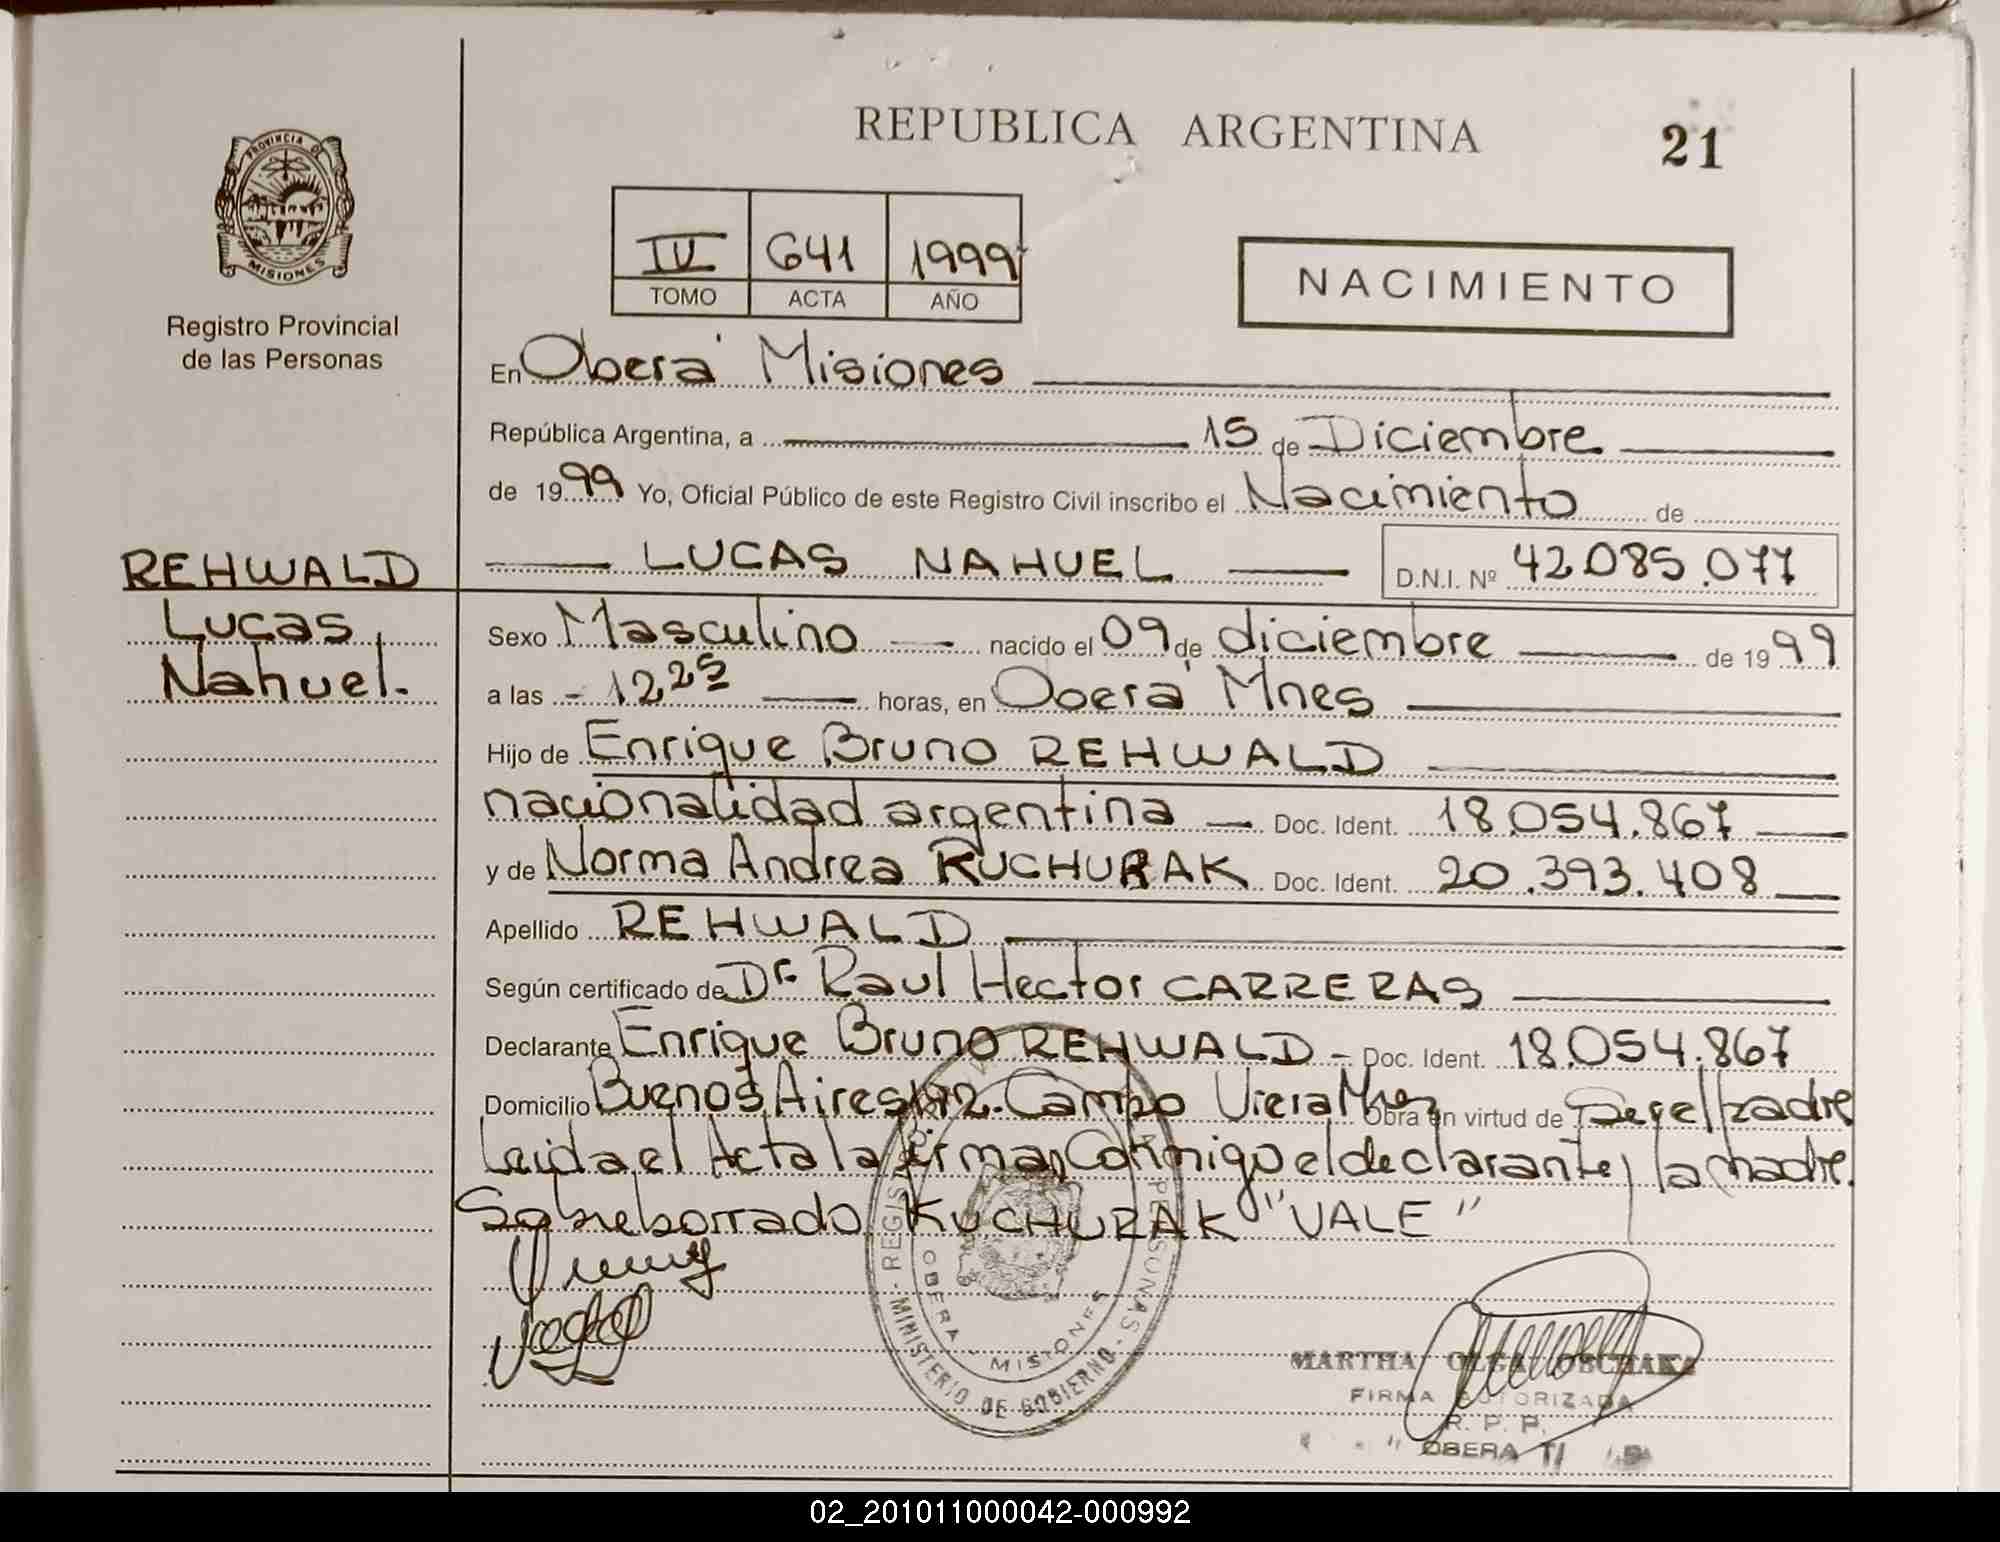 PROVINCIA DE
MISIONES
Registro Provincial
de las Personas
REHWALD
Lucas
Nahuel.
REPUBLICA ARGENTINA
21
IV 641 1999
TOMO ACTA AÑO
NACIMIENTO
En Oberá Misiones
República Argentina, a 15 de Diciembre
de 1999 Yo, Oficial Público de este Registro Civil inscribo el Nacimiento de
LUCAS NAHUEL D.N.I. Nº 42.085.077
Sexo Masculino nacido el 09 de diciembre de 1999
a las - 12 25 horas, en Oberá Mnes
Hijo de Enrique Bruno REHWALD
nacionalidad argentina Doc. Ident. 18.054.867
y de Norma Andrea KUCHURAK Doc. Ident. 20.393.408
Apellido REHWALD
Según certificado de Dr Raul Hector CARRERAS
Declarante Enrique Bruno REHWALD - Doc. Ident. 18.054.867
Domicilio Buenos Aires Campo Viera Mnes Obra en virtud de Ser el padre
Leida el Acta la firman Conmigo el declarante y la madre.
Sobreborrado KUCHURAK "VALE"
OBERA - MISIONES
MINISTERIO DE GOBIERNO
MARTHA OLGA OBCHAKA
FIRMA AUTORIZADA
R. P. P.
OBERA
02_201011000042-000992